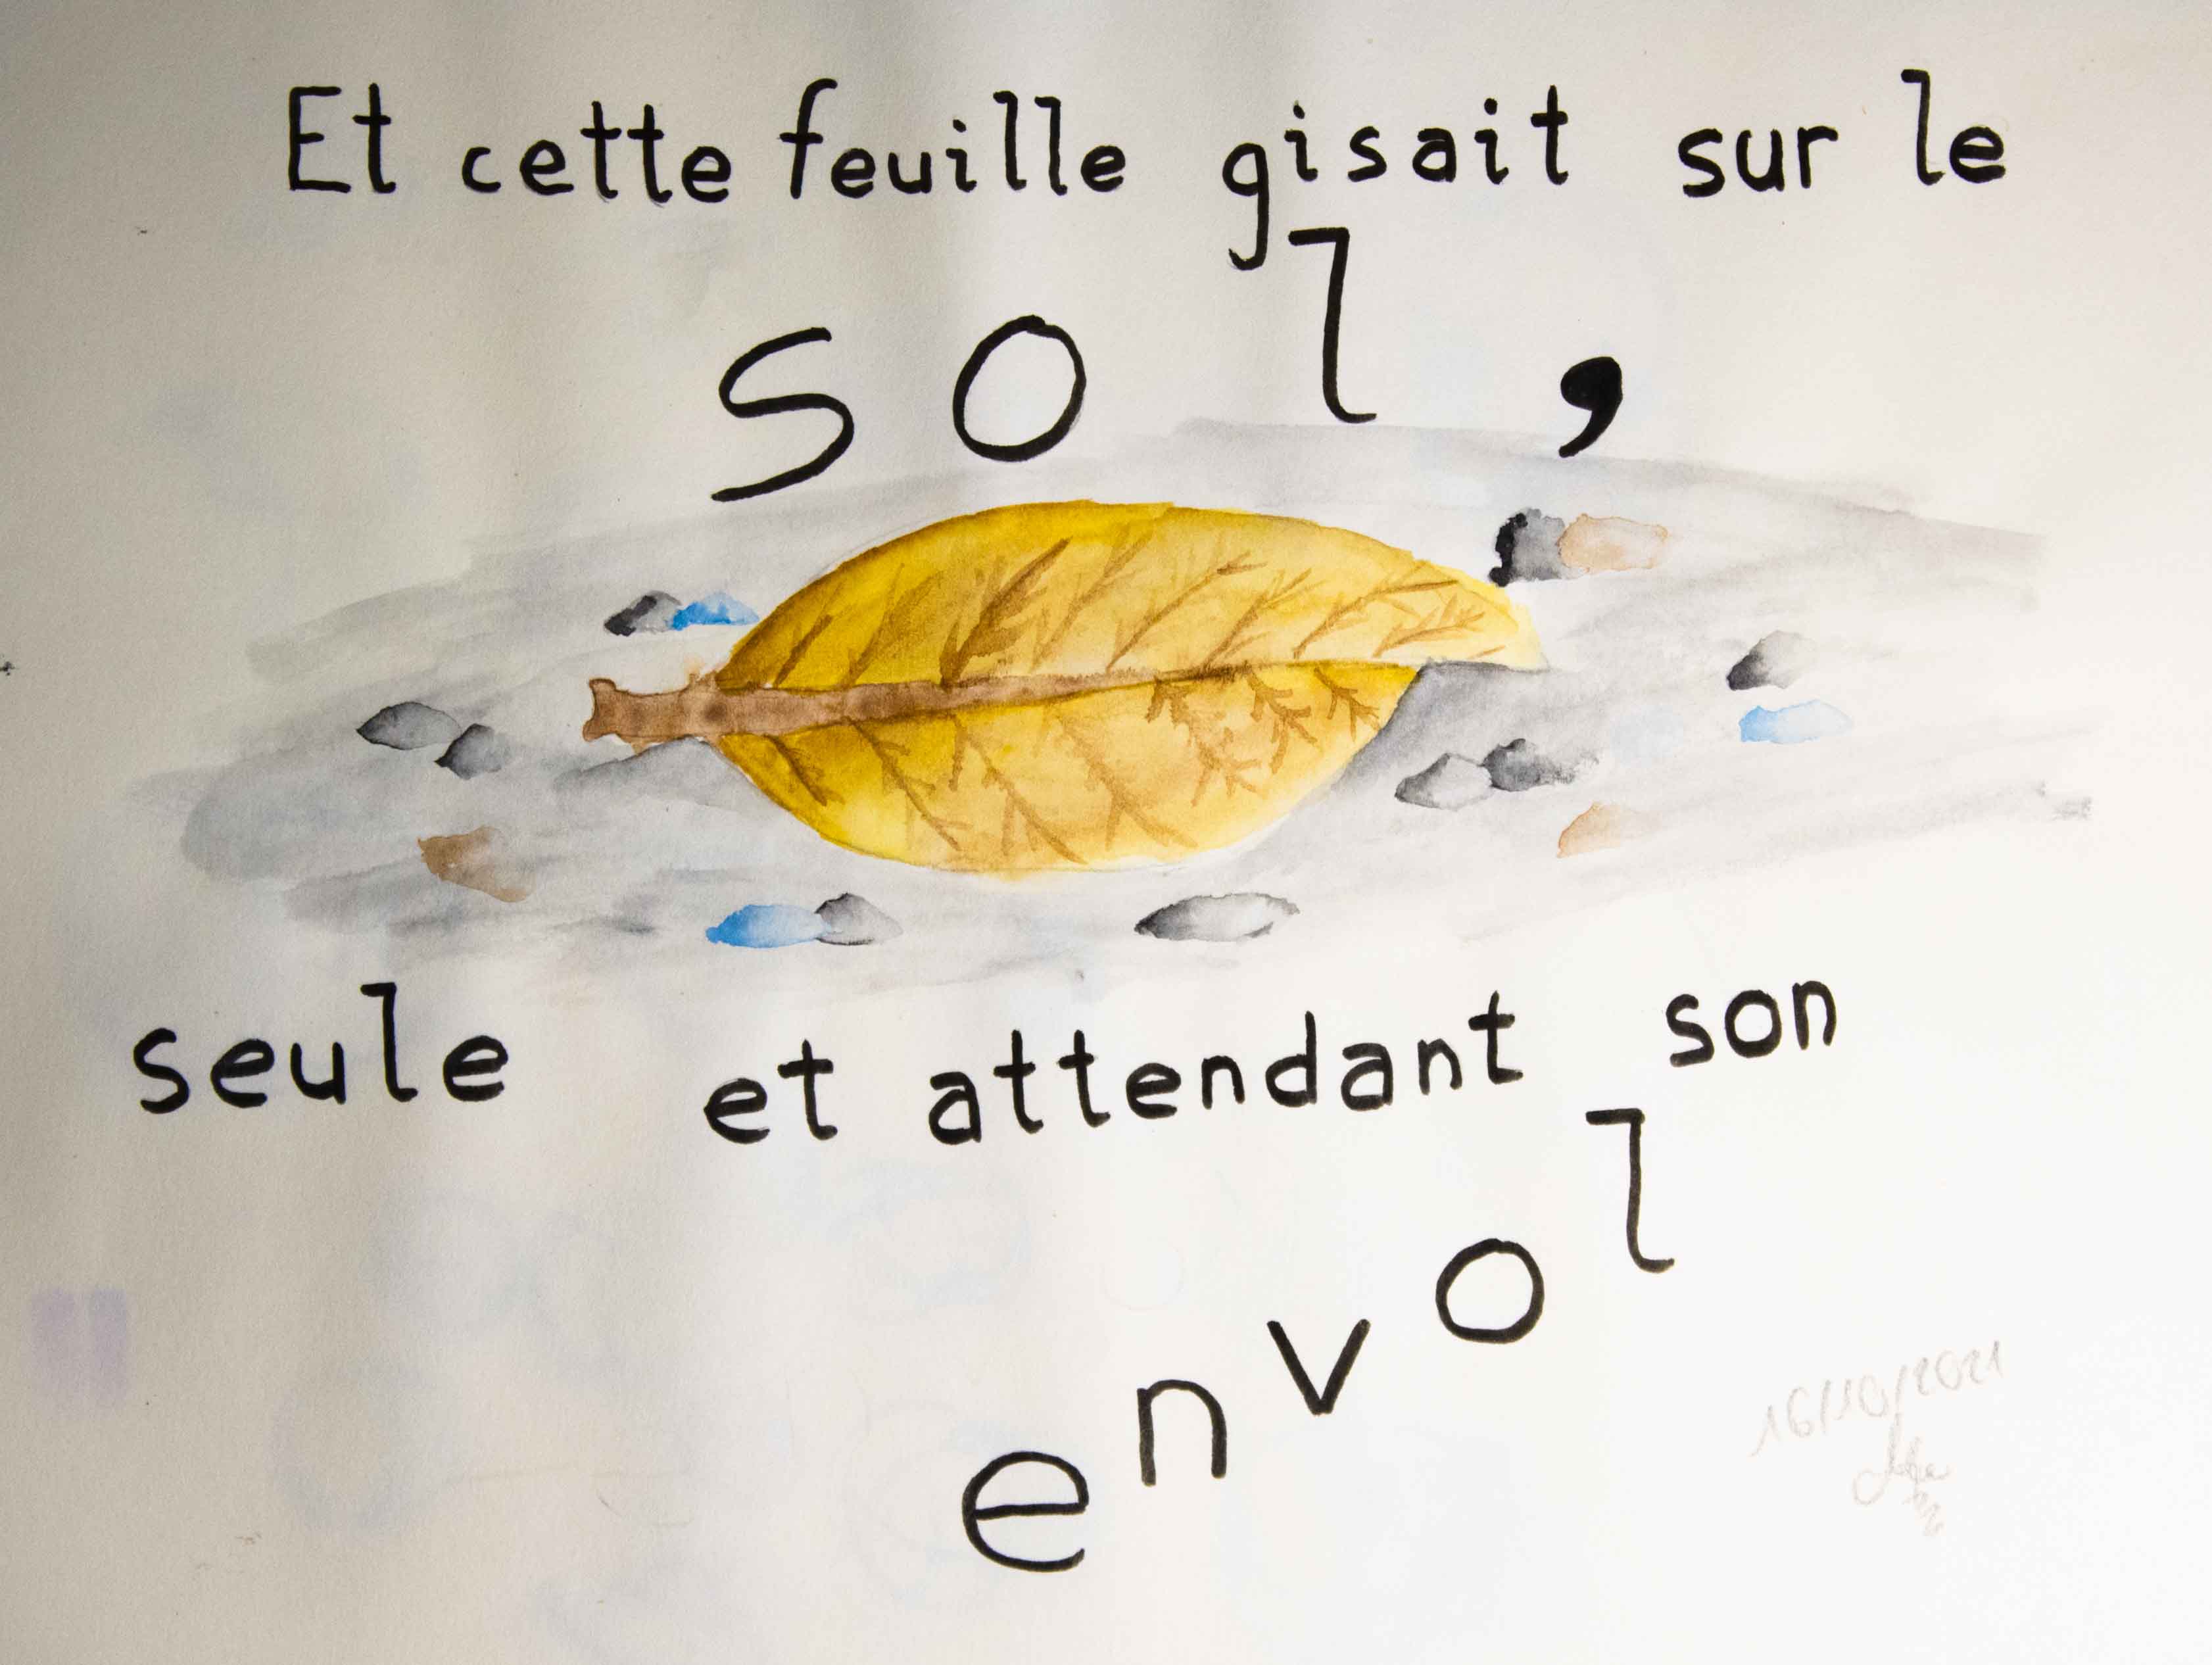 Et cette feuille gisait sur le
sol,
seule et attendant son
envol
16/10/2021